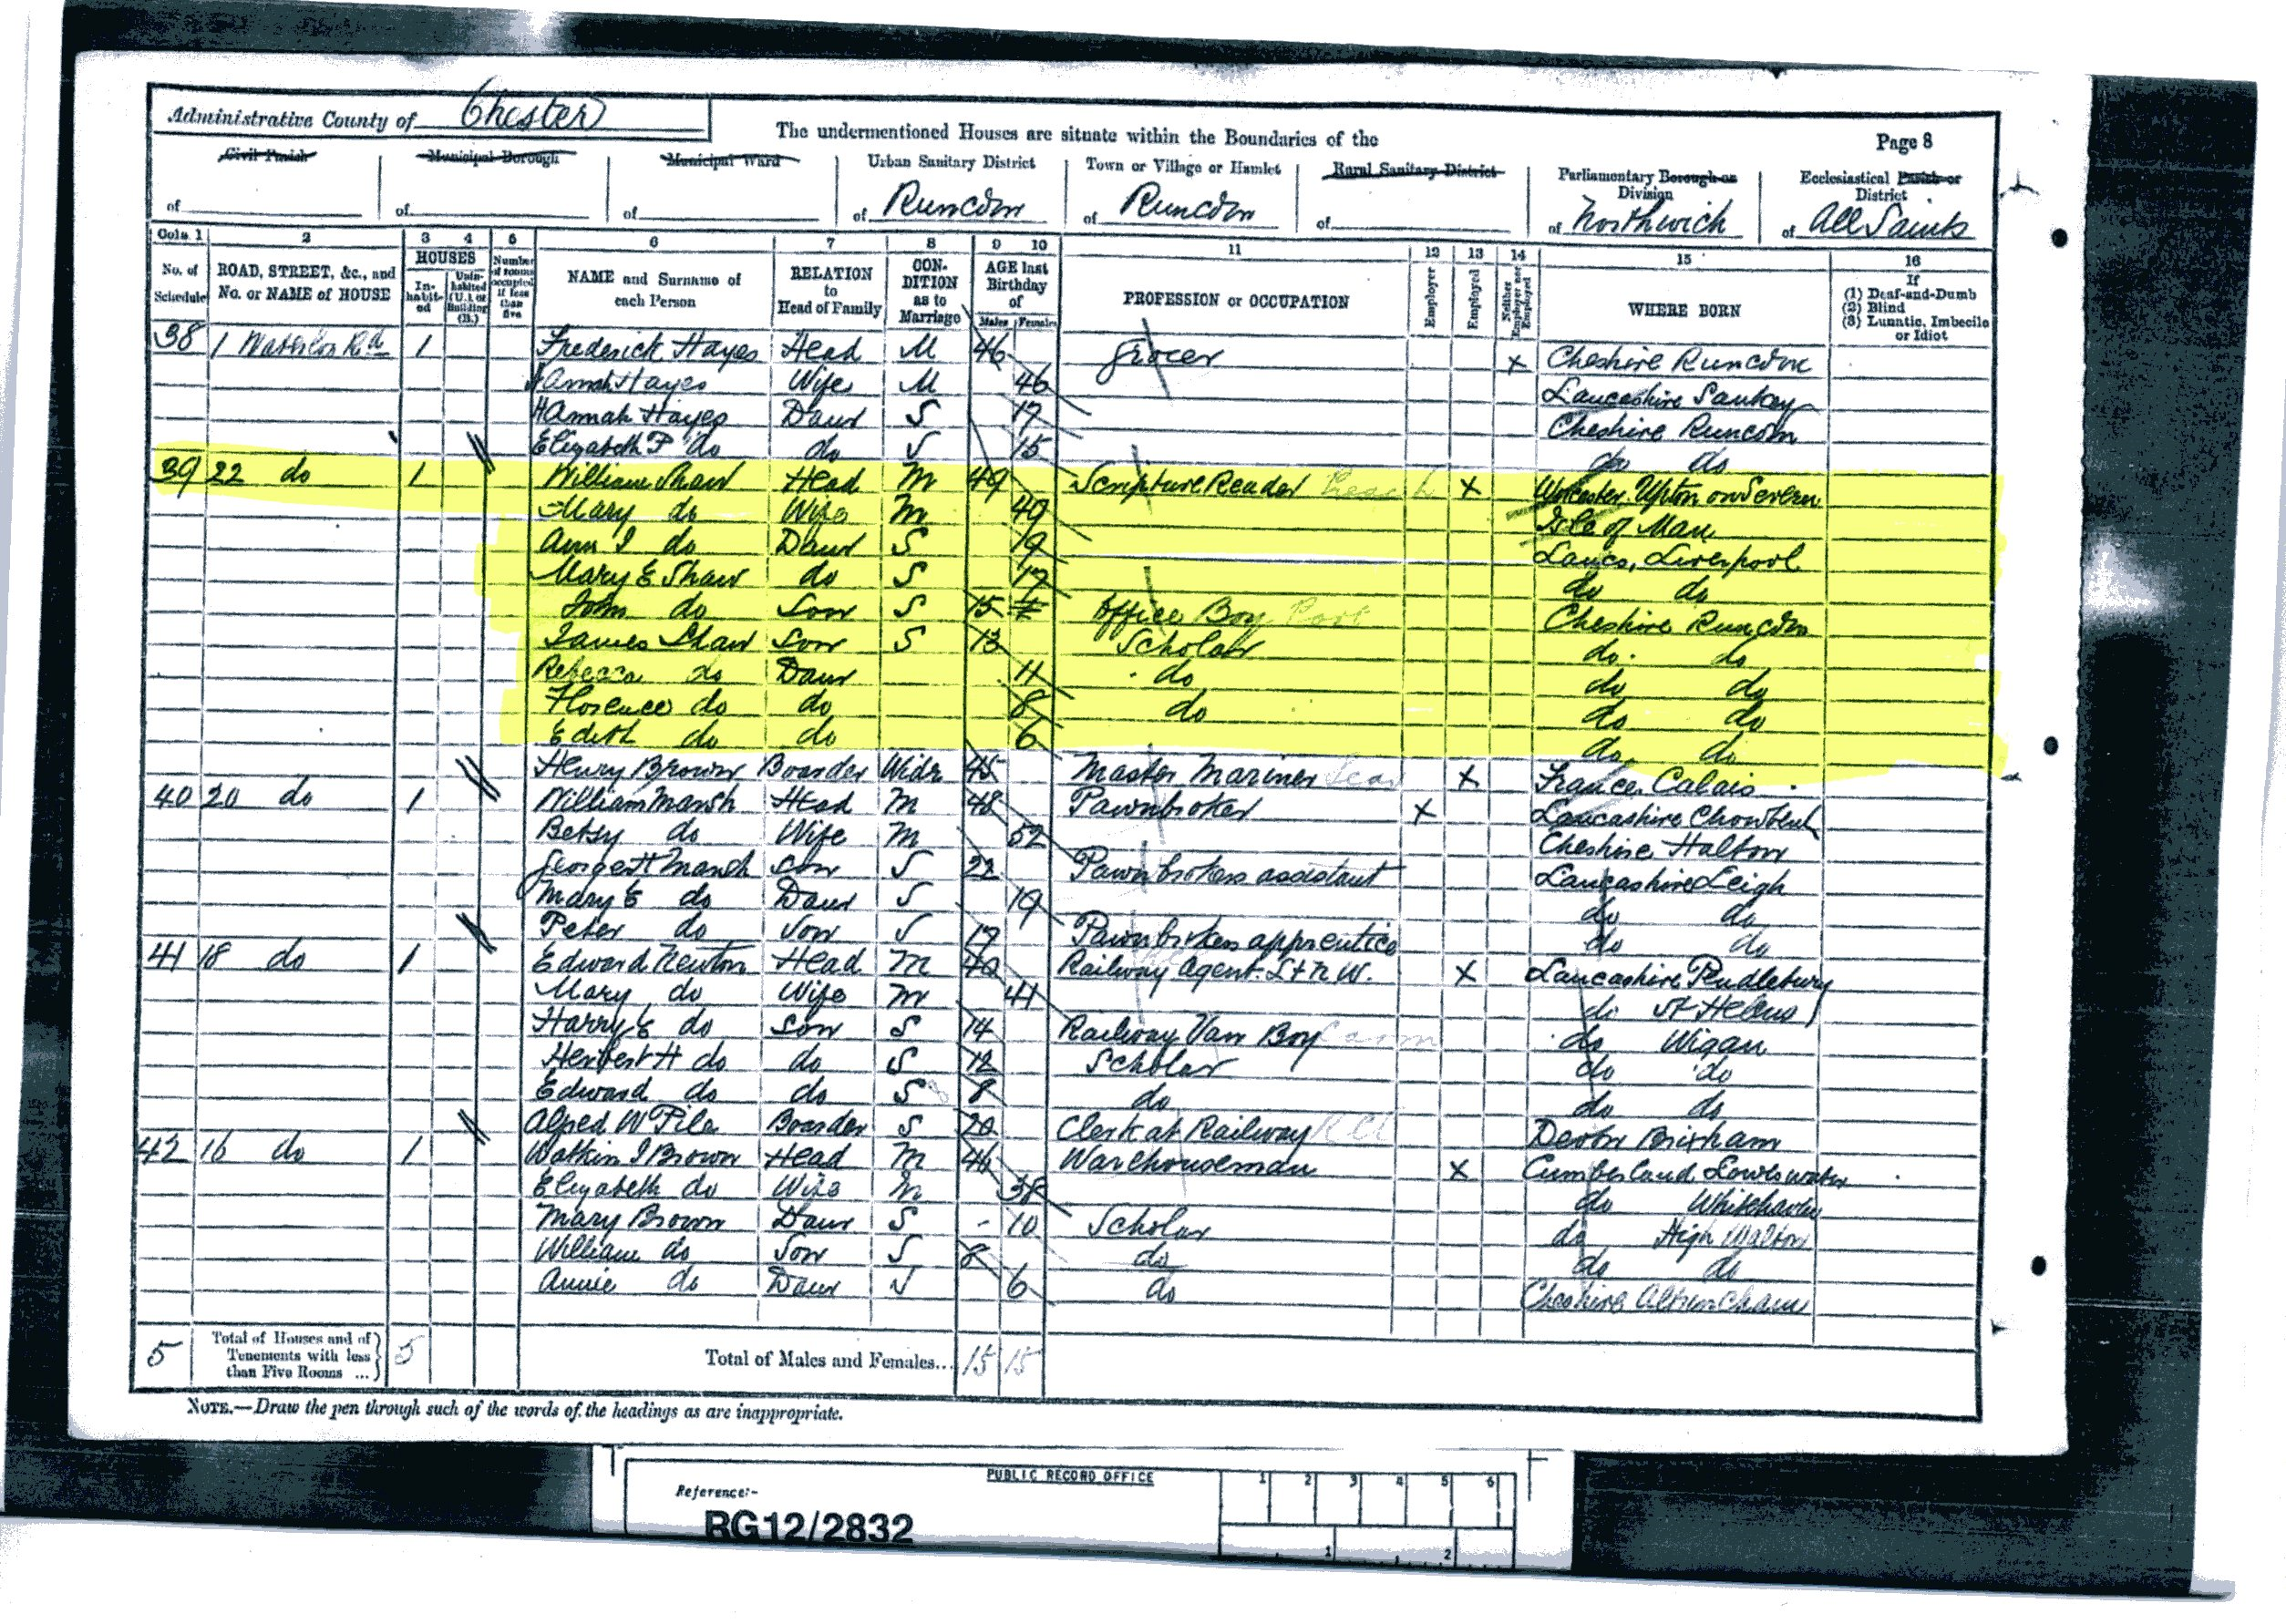 Administrative County of Chester
The undermentioned Houses are situate within the Boundaries of the
Page 8
Civil Parish Municipal Borough Municipal Ward Urban Sanitary District Town or Village or Hamlet Rural Sanitary District Parliamentary Borough or Division Ecclesiastical Parish or District
of of of of Runcorn of Runcorn of of Northwich of All Saints
Cols. 1 2 3 4 5 6 7 8 9 10 11 12 13 14 15 16
No. of Schedule ROAD, STREET, &c., and No. or NAME of HOUSE HOUSES In-habit-ed Unin-habited (U.), or Building (B.) Number of rooms occupied if less than five NAME and Surname of each Person RELATION to Head of Family CON-DITION as to Marriage AGE last Birthday of Males Females PROFESSION or OCCUPATION Employer Employed Neither Employer nor Employed WHERE BORN If (1) Deaf-and-Dumb (2) Blind (3) Lunatic, Imbecile or Idiot
38 1 Waterloo Rd 1 Frederick Hayes Head M 46 Grocer X Cheshire Runcorn
Hannah Hayes Wife M 46 Lancashire Sankey
Hannah Hayes Daur S 17 Cheshire Runcorn
Elizabeth P do do S 15 do do
39 22 do 1 William Shaw Head M 49 Scripture Reader X Worcester Upton on Severn
Mary do Wife M 49 Isle of Man
Ann I do Daur S 19 Lancs, Liverpool
Mary E Shaw do S 17 do do
John do Son S 15 Office Boy Cheshire Runcorn
James Shaw Son S 13 Scholar do do
Rebecca do Daur 11 do do do
Florence do do 8 do do do
Edith do do 6 do do
Henry Brown Boarder Widr 45 Master Mariner X France Calais
40 20 do 1 William Marsh Head M 48 Pawnbroker X Lancashire Chowbent
Betsy do Wife M 52 Cheshire Halton
George H Marsh Son S 22 Pawnbrokers assistant Lancashire Leigh
Mary E do Daur S 19 do do
Peter do Son S 17 Pawnbrokers apprentice do do
41 18 do 1 Edward Newton Head M 40 Railway Agent. L & N W. X Lancashire Pendlebury
Mary do Wife M 41 do St Helens
Harry E do Son S 14 Railway Van Boy do Wigan
Herbert H do do S 12 Scholar do do
Edward do do S 8 do do do
Alfred W Pile Boarder S 20 Clerk at Railway Devon Brixham
42 16 do 1 Watkin J Brown Head M 46 Warehouseman X Cumberland Loweswater
Elizabeth do Wife M 38 do Whitehaven
Mary Brown Daur S - 10 Scholar do High Walton
William do Son S 8 do do do
Annie do Daur S 6 do Cheshire Altrincham
5 Total of Houses and of Tenements with less than Five Rooms ... 5 Total of Males and Females... 15 15
NOTE.—Draw the pen through such of the words of the headings as are inappropriate.
PUBLIC RECORD OFFICE 1 2 3 4 5 6
Reference:-
RG12/2832
1 2